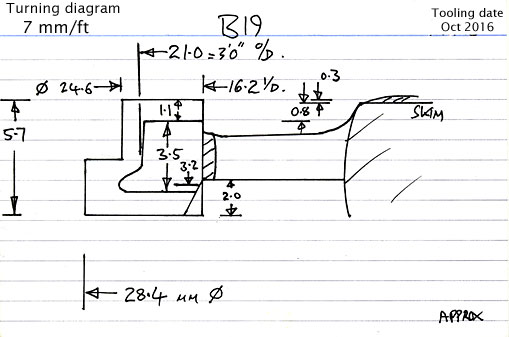 Turning diagram
7 mm/ft
B19
Tooling date
Oct 2016
21.0 = 3'0" O/D.
Ø 24.6
16.2 I/D.
0.3
1.1
0.8
SKIM
5.7
3.5
3.2
2.0
28.4 mm Ø
APPROX